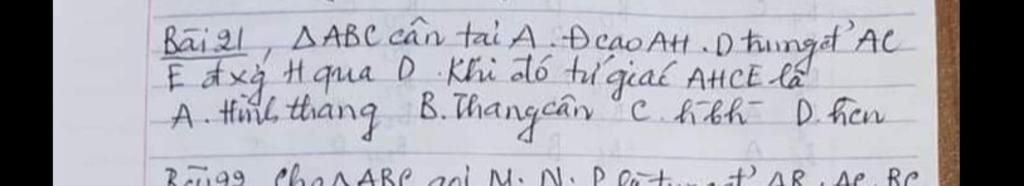 Bāi 21, ΔABC cân tại A. Đcao AH. D trung đ' AC
E đxg H qua D. Khi đó tứ giác AHCE là
A. Hình thang B. Thang cân C. hbh D. hcn
Cho ΔABC gọi M, N, P